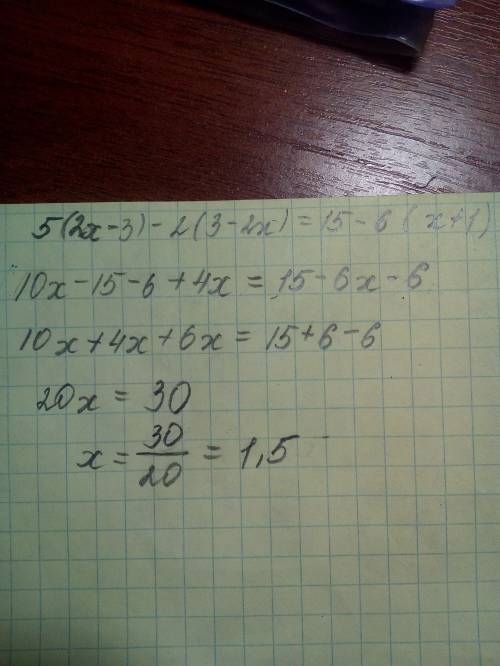 5(2x-3)-2(3-2x)=15-6(x+1)
10x-15-6+4x=15-6x-6
10x+4x+6x=15+6-6
20x=30
x=30/20=1,5